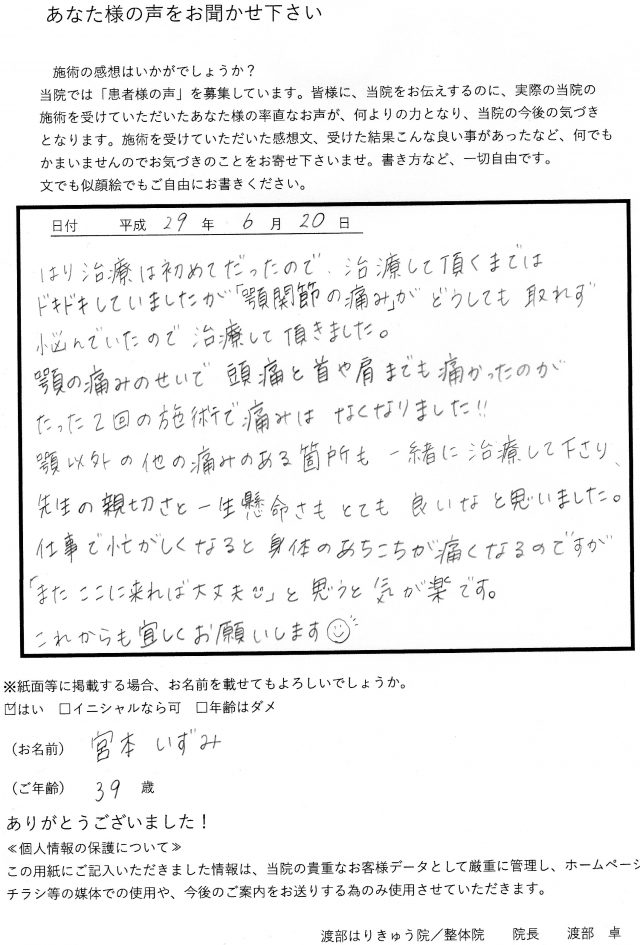 あなた様の声をお聞かせ下さい
施術の感想はいかがでしょうか？
当院では「患者様の声」を募集しています。皆様に、当院をお伝えするのに、実際の当院の
施術を受けていただいたあなた様の率直なお声が、何よりの力となり、当院の今後の気づき
となります。施術を受けていただいた感想文、受けた結果こんな良い事があったなど、何でも
かまいませんのでお気づきのことをお寄せ下さいませ。書き方など、一切自由です。
文でも似顔絵でもご自由にお書きください。
日付　平成 29 年 6 月 20 日
はり治療は初めてだったので、治療して頂くまでは
ドキドキしていましたが「顎関節の痛み」がどうしても取れず
悩んでいたので治療して頂きました。
顎の痛みのせいで頭痛と首や肩までも痛かったのが
たった2回の施術で痛みはなくなりました!!
顎以外の他の痛みのある箇所も一緒に治療して下さり、
先生の親切さと一生懸命さもとても良いなと思いました。
仕事で忙がしくなると身体のあちこちが痛くなるのですが
「またここに来れば大丈夫」と思うと気が楽です。
これからも宜しくお願いします
※紙面等に掲載する場合、お名前を載せてもよろしいでしょうか。
☑はい　□イニシャルなら可　□年齢はダメ
（お名前）　宮本 いずみ
（ご年齢）　39　歳
ありがとうございました！
≪個人情報の保護について≫
この用紙にご記入いただきました情報は、当院の貴重なお客様データとして厳重に管理し、ホームページ
チラシ等の媒体での使用や、今後のご案内をお送りする為のみ使用させていただきます。
渡部はりきゅう院／整体院　院長　渡部　卓